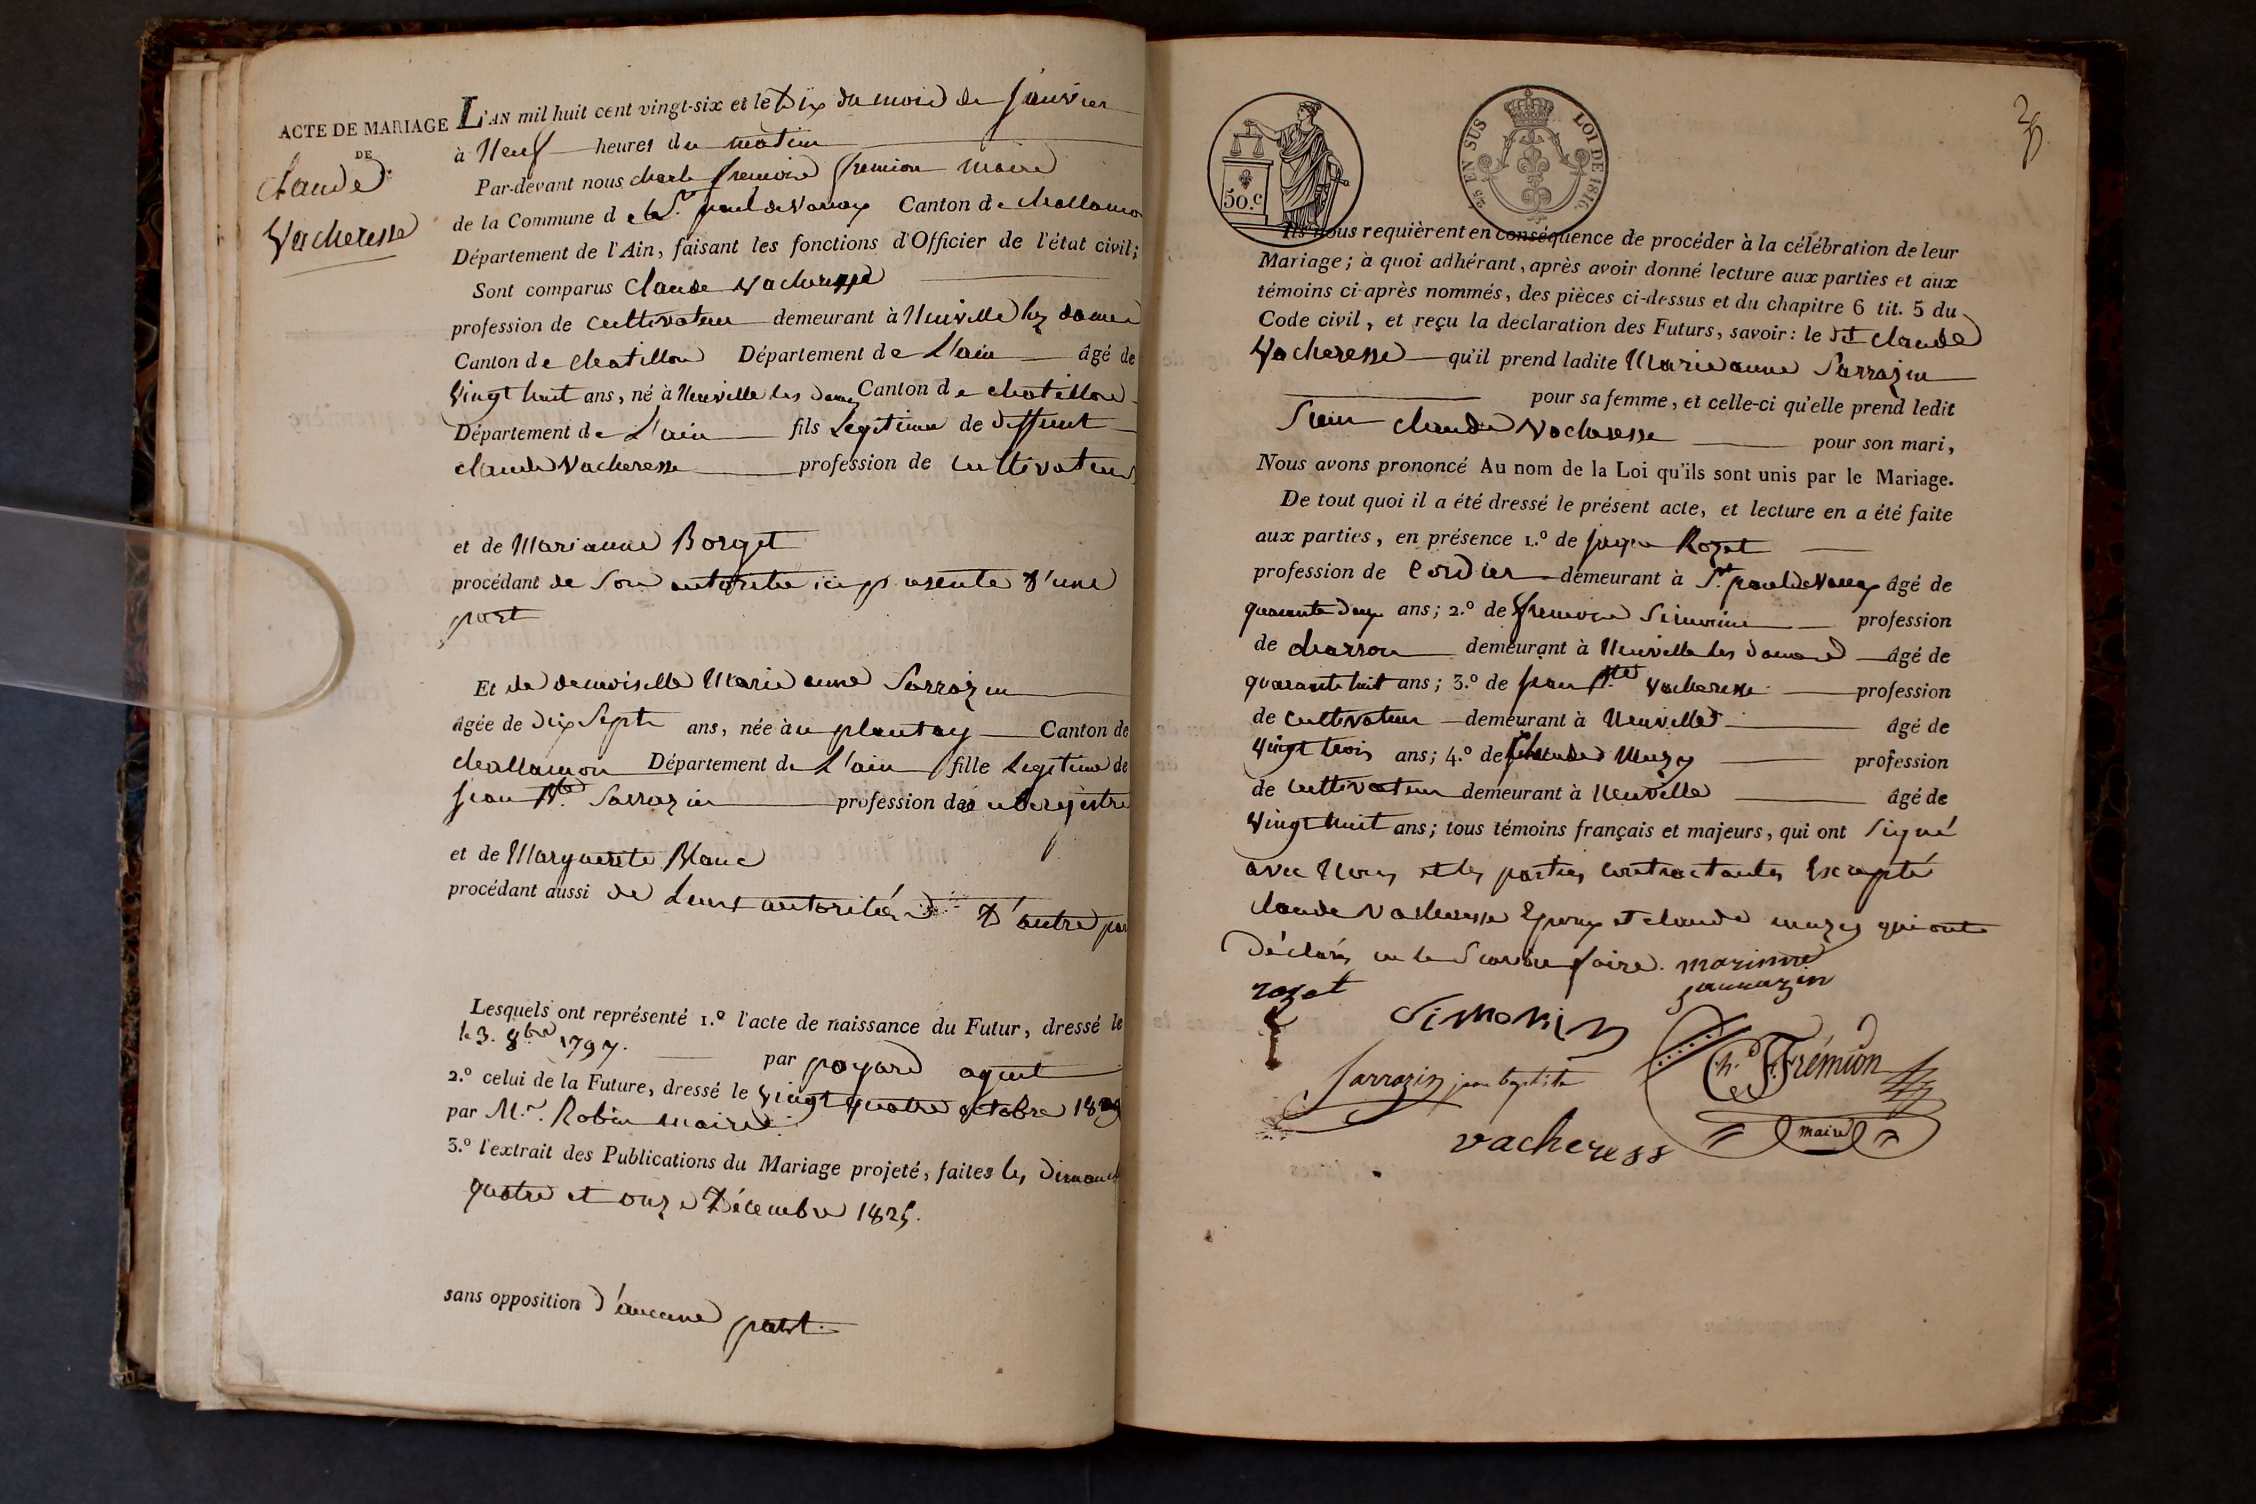 ACTE DE MARIAGE
DE
Claude
Vacheresse
L'AN mil huit cent vingt-six et le Dix du mois de Janvier
à Neuf heures du matin
Par-devant nous charle fremion maire
de la Commune de St. paul de Varax Canton de challamon
Département de l'Ain, faisant les fonctions d'Officier de l'état civil;
Sont comparus Claude Vacheresse
profession de cultivateur demeurant à Neuville les dames
Canton de chatillon Département de L'ain âgé de
Vingt huit ans, né à Neuville les dames Canton de chatillon
Département de L'ain fils Legitime de deffunt
claude Vacheresse profession de cultivateur
et de Marianne Borget
procédant de Son autorité ici presente D'une
part
Et de demoiselle Marie anne Sarrazin
âgée de dix Sept ans, née au plantay Canton de
challamon Département de L'ain fille Legitime de
jean Bte. Sarrazin profession de aubergiste
et de Marguerite Blanc
procédant aussi de Leurs autorités D'autre par
Lesquels ont représenté 1.º l'acte de naissance du Futur, dressé le
le 3. 8bre 1797. par poyard agent
2.º celui de la Future, dressé le vingt quatre octobre
par Mr. Robin maire
3.º l'extrait des Publications du Mariage projeté, faites les dimanch
quatre et onze Décembre 1825.
sans opposition d'aucune part.
50.c
25 EN SUS
LOI DE 1816.
Ils nous requièrent en conséquence de procéder à la célébration de leur
Mariage; à quoi adhérant, après avoir donné lecture aux parties et aux
témoins ci-après nommés, des pièces ci-dessus et du chapitre 6 tit. 5 du
Code civil, et reçu la déclaration des Futurs, savoir: le dit Claude
Vacheresse qu'il prend ladite Marie anne Sarrazin
pour sa femme, et celle-ci qu'elle prend ledit
Sieur claude Vacheresse pour son mari,
Nous avons prononcé Au nom de la Loi qu'ils sont unis par le Mariage.
De tout quoi il a été dressé le présent acte, et lecture en a été faite
aux parties, en présence 1.º de jaque Rozat
profession de Cordier demeurant à St. paul de Varax âgé de
quarante deux ans; 2.º de Simonin profession
de charron demeurant à Neuville les dames âgé de
quarante huit ans; 3.º de jean Bte Vacheresse profession
de cultivateur demeurant à Neuville âgé de
Vingt trois ans; 4.º de Claude Muzy profession
de cultivateur demeurant à Neuville âgé de
Vingt huit ans; tous témoins français et majeurs, qui ont Signé
avec Nous et les parties contractantes Excepté
claude Vacheresse Epoux et claude muzy qui ont
Déclaré ne le Scavoir faire. marianne
sarrazin
rozat
Simonin
Sarrazin jean baptiste
Ch. Frémion
maire
vacheress